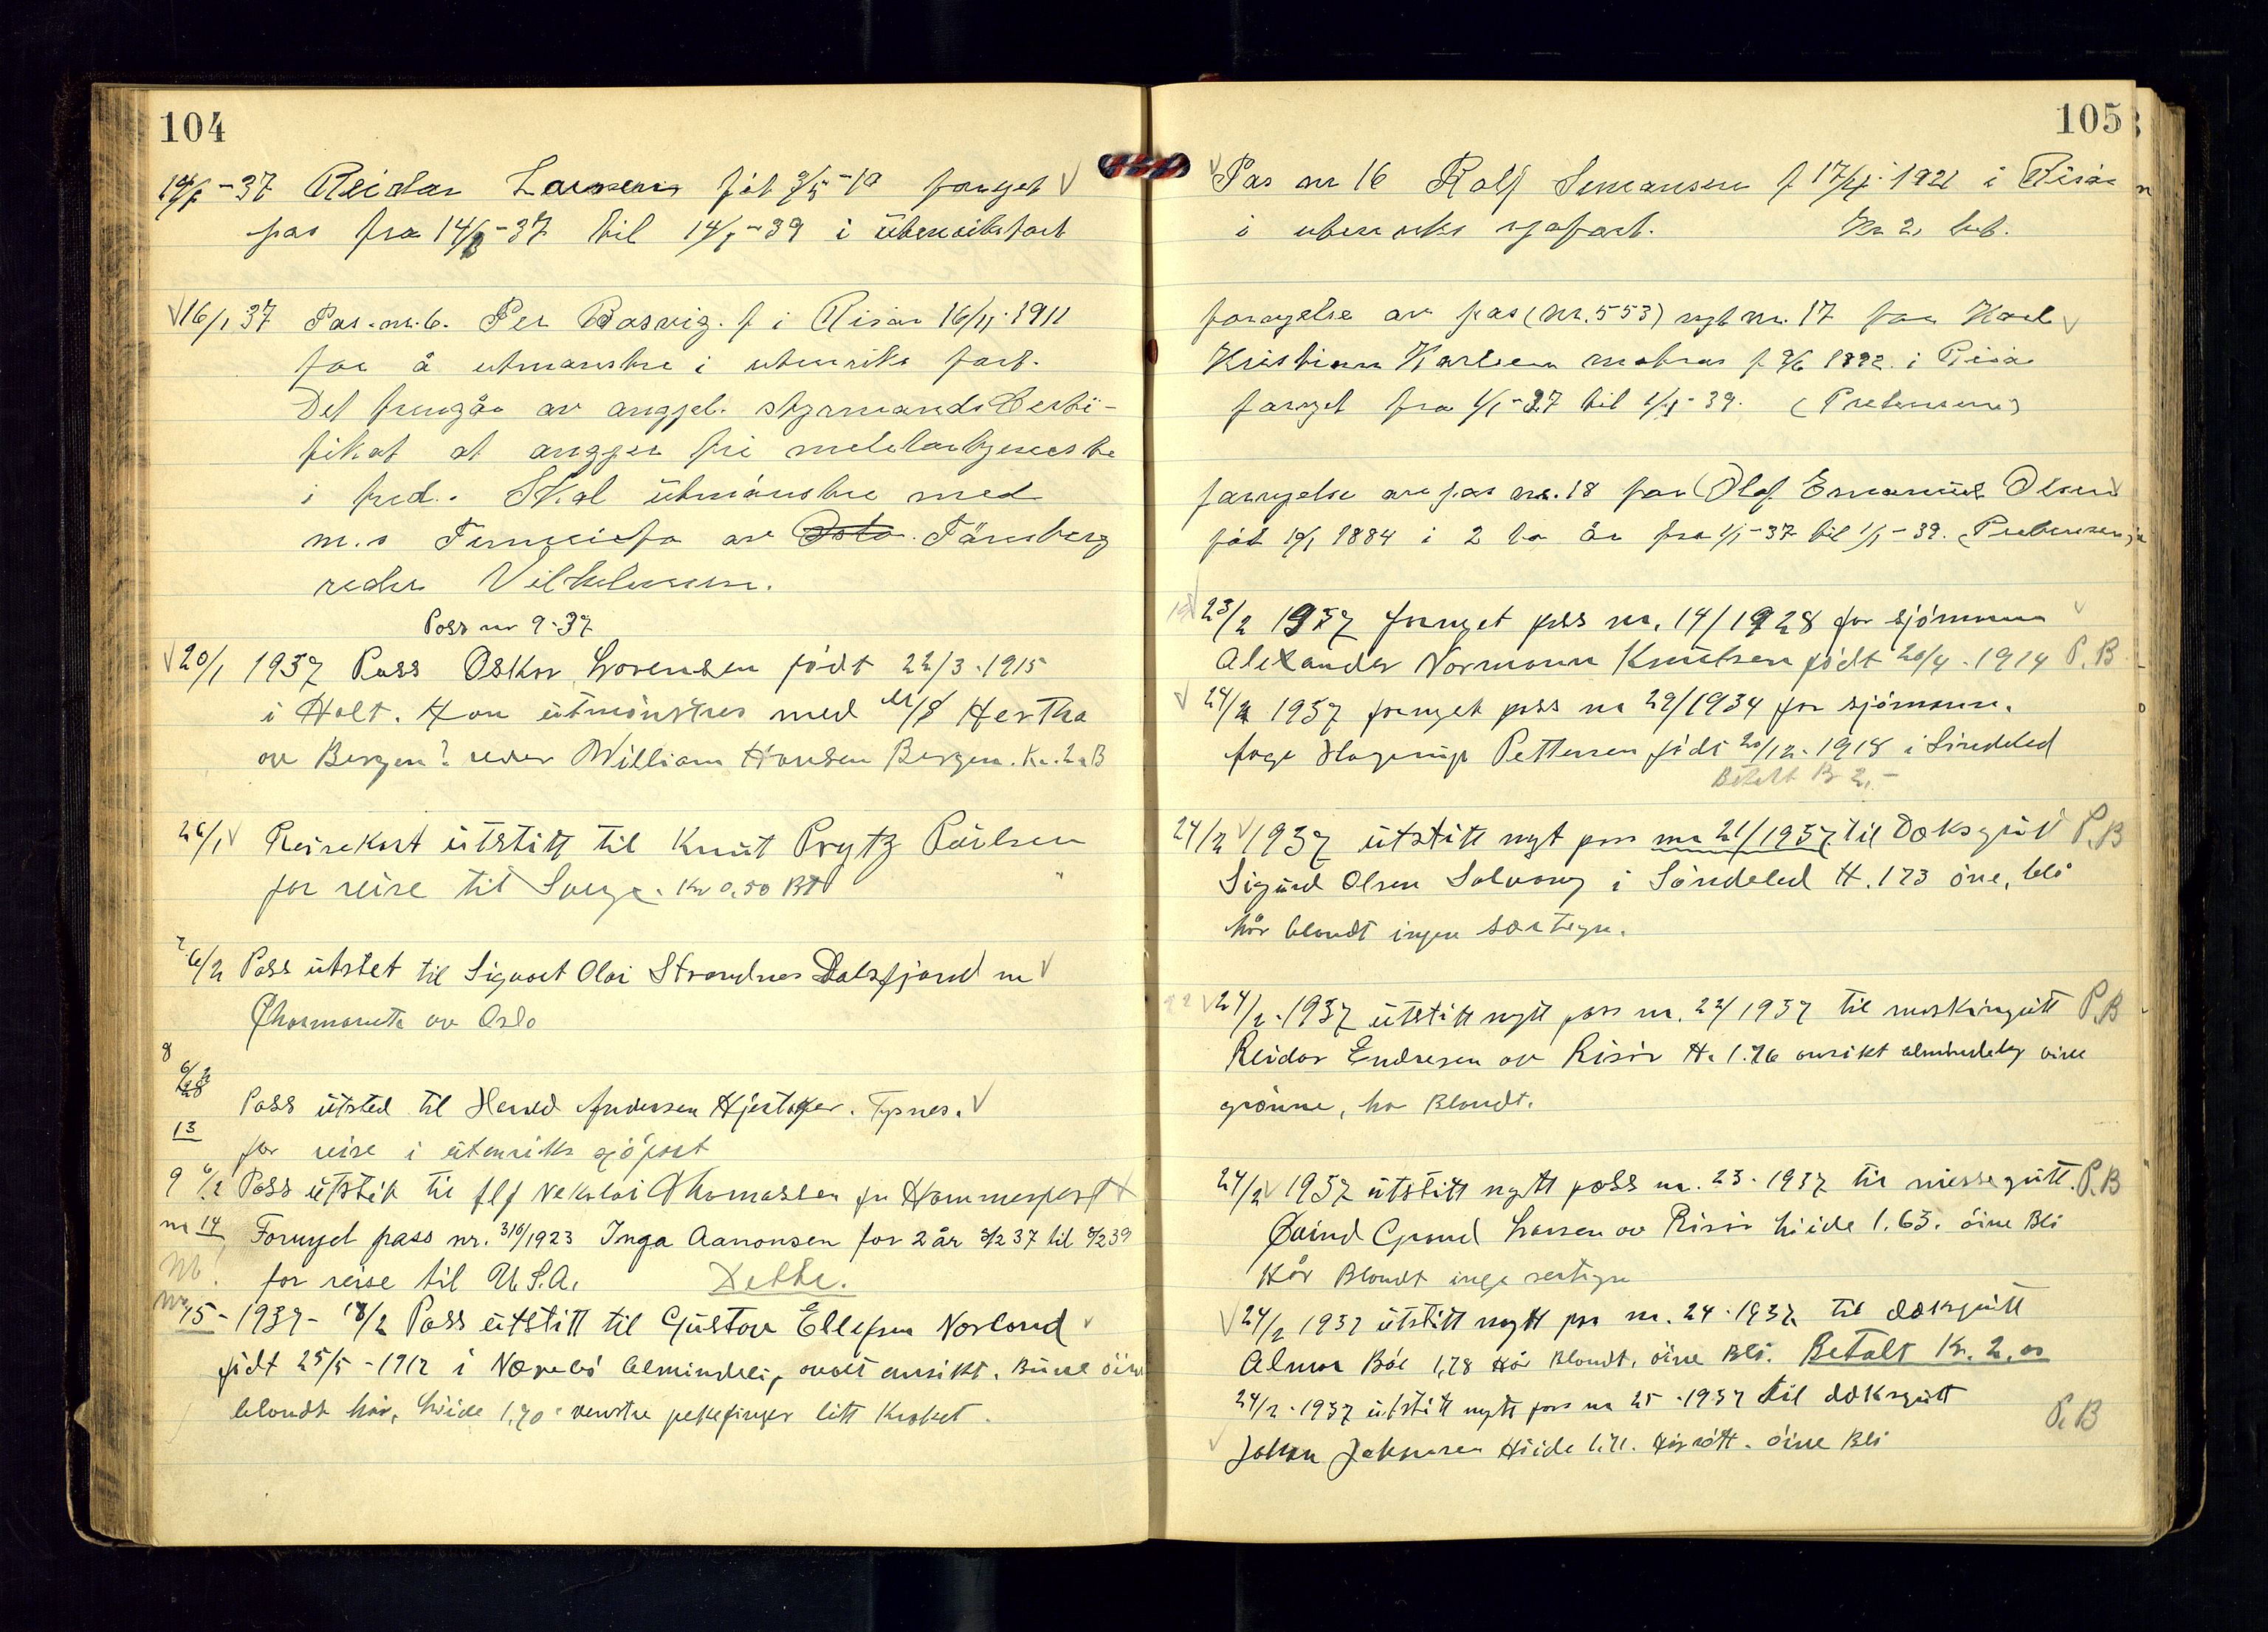 104
14/1-37 Reidar Larsens föt 3/5-19 fornyet
pas fra 14/1-37 til 14/1-39 i utenriksfart
16/1 37 Pas. nr. 6. Per Bosvig. f i Risör 16/11-1911
for å utmønstre i utenriks fart.
Det fremgår av angjel. styrmands Certi-
fikat at angjel fri
i fred. Skal utmönstre med
m.s av Oslo Tönsberg
reder Vilhelmsen.
Pass nr 9-37
20/1 1937 Pass Oskar Lorensen födt 22/3-1915
i Holt. Han utmönstres med M/S Hertha
av Bergen? reder William Hansen Bergen. Kr. 2. B
26/1 Reisekort utstitt til Knut Prytz Paulsen
for reise til Sverge. Kr 0,50 Bt
7 6/2 Pass utstet til Sigvart Olai Strandnes Dalsfjord m
Thormonde av Oslo
8 6/2
Pass utsted til Harald Andersen Hjertaker. Tysnes.
13
for reise i utenriks sjöfart
9 6/2 Pass utstit til Alf Nekolai Thomassen fr Hammerfest
nr 14 Fornyet pass nr. 310/1923 Inga Aanonsen for 2 år 8/2 37 til 8/2 39
Nb! for reise til U.S.A. Dette.
Nr 15 - 1937 - 18/2 Pass utstitt til Gustav Ellefsen Norland
födt 25/5-1912 i almindeli, ovalt ansikt. Bune öine
blondt hår, höide 1,70 venstre pekefinger litt kroket.
105
Pas nr 16 Rolf Simonsen f 17/4-1921 i Risör
i utenriks sjøfart. Kr 2, bet.
fornyelse av pas (Nr. 553) nyt nr. 17 for Karl
Kristian Karlsen matros f 9/6 1892. i Risör
fornyet fra 1/1-37 til 1/1-39. (Prebensen)
fornyelse av pas nr. 18 for Olaf Emanuel Olsen
föt 19/1 1884 i 2 to år fra 1/1-37 til 1/1-39. (Prebensen)
19 23/2 1937 fornyet pass nr. 14/1928 for sjömann
Alexander Normann Knutsen födt 20/4-1914 P.B
24/2 1937 fornyet pass nr 29/1934 for sjömann.
Aage Hagerup Pettersen födt 20/12-1918 i Söndeled
Betalt Kr 2,-
24/2 1937 utstitt nyt pass nr 21/1937 til Doksgutt P.B
Sigurd Olsen Solvang i Söndeled H. 1.73 öine, blå
hår blondt ingen særtegn.
22 24/2-1937 utstitt nytt pass nr. 22/1937 til maskingutt P.B
Reidar Endresen av Risör H. 1.76 ansikt almindelig oine
grönne, har Blondt.
24/2 1937 utstitt nytt pass nr. 23-1937 til messegutt. P.B
Øivind Grand Larsen av Risör höide 1.63. öine Blå
Hår Blondt inge sertegn
24/2 1937 utstitt nytt pas nr. 24-1937 til doksgutt
Almar Böe 1,78 Hår Blondt, öine Blå. Betalt Kr. 2,00
24/2-1937 utstitt nytt pass nr 25-1937 til doksgutt
Johan Jakobsen Höide Hår rött. öine Blå P.B